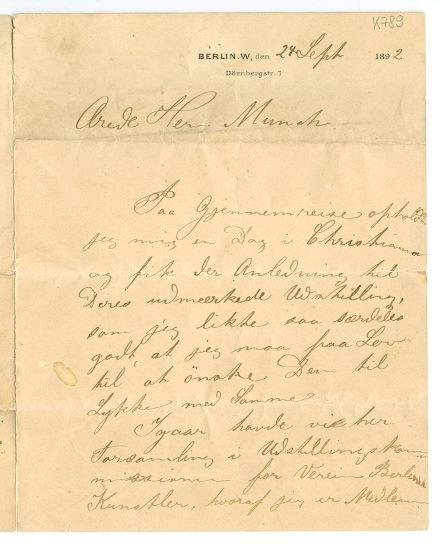 K789
BERLIN.W, den 24 Sept 1892
Dörnbergstr. 7
Ærede Herr Munch
Paa Gjennemreise opholdt
jeg mig en Dag i Christiania
og fik der Anledning til
Deres udmærkede Udstilling,
som jeg likte saa særdeles
godt, at jeg maa faa Lov
til at önske Dem til
Lykke med Samme
Igaar havde vi her
Forsamling i Udstillingskom-
missionen for Verein Berliner
Künstler, hvoraf jeg er Medlem